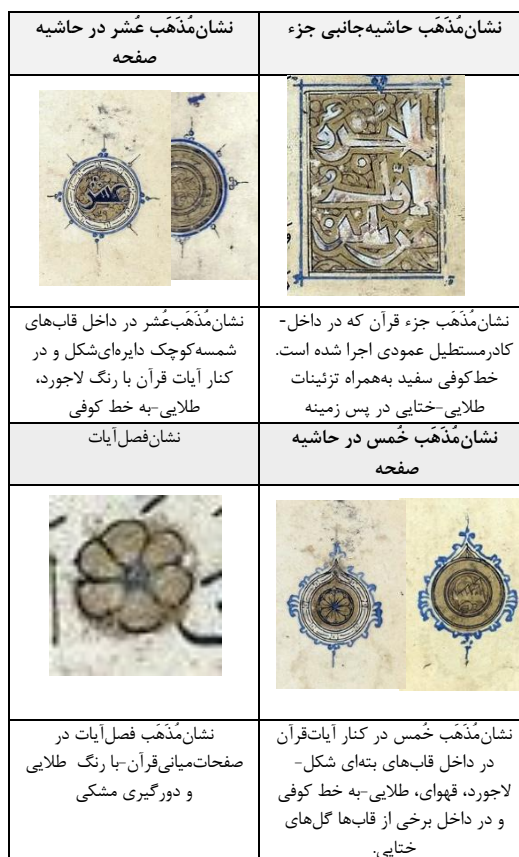 نشان‌مُذَهَب حاشیه‌جانبی جزء
نشان‌مُذَهَب عُشر در حاشیه
صفحه
عشر
نشان‌مُذَهَب جزء قرآن که در داخل-
کادرمستطیل عمودی اجرا شده است.
خط‌کوفی سفید به‌همراه تزئینات
طلایی-ختایی در پس زمینه
نشان‌مُذَهَب‌عُشر در داخل قاب‌های
شمسه‌کوچک دایره‌ای‌شکل و در
کنار آیات قرآن با رنگ لاجورد،
طلایی-به خط کوفی
نشان‌مُذَهَب خُمس در حاشیه
صفحه
نشان‌فصل‌آیات
نشان‌مُذَهَب خُمس در کنار آیات‌قرآن
در داخل قاب‌های بته‌ای شکل-
لاجورد، قهوای، طلایی-به خط کوفی
و در داخل برخی از قاب‌ها گل‌های
ختایی.
نشان‌مُذَهَب فصل‌آیات در
صفحات‌میانی‌قرآن-با رنگ طلایی
و دورگیری مشکی